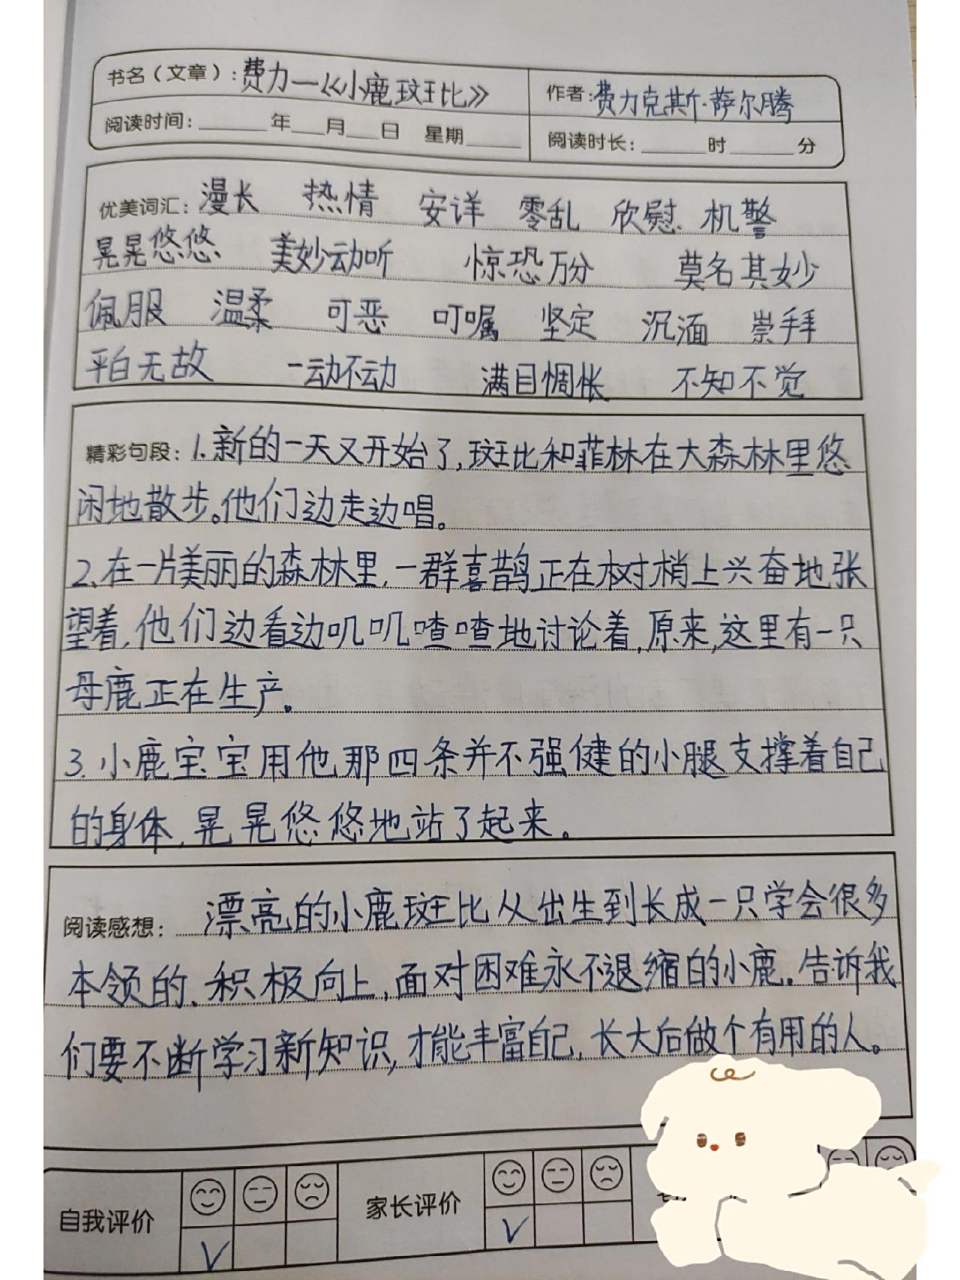 书名（文章）：费力—《小鹿斑比》 作者：费力克斯·萨尔腾
阅读时间：______年___月___日 星期_____ 阅读时长：______时______分
优美词汇：漫长 热情 安详 零乱 欣慰 机警
晃晃悠悠 美妙动听 惊恐万分 莫名其妙
佩服 温柔 可恶 叮嘱 坚定 沉湎 崇拜
平白无故 一动不动 满目惆怅 不知不觉
精彩句段：1.新的一天又开始了,斑比和菲林在大森林里悠
闲地散步。他们边走边唱。
2、在一片美丽的森林里,一群喜鹊正在树梢上兴奋地张
望着,他们边看边叽叽喳喳地讨论着,原来,这里有一只
母鹿正在生产。
3.小鹿宝宝用他那四条并不强健的小腿支撑着自己
的身体,晃晃悠悠地站了起来。
阅读感想：漂亮的小鹿斑比从出生到长成一只学会很多
本领的、积极向上,面对困难永不退缩的小鹿.告诉我
们要不断学习新知识,才能丰富自己,长大后做个有用的人。
自我评价 家长评价